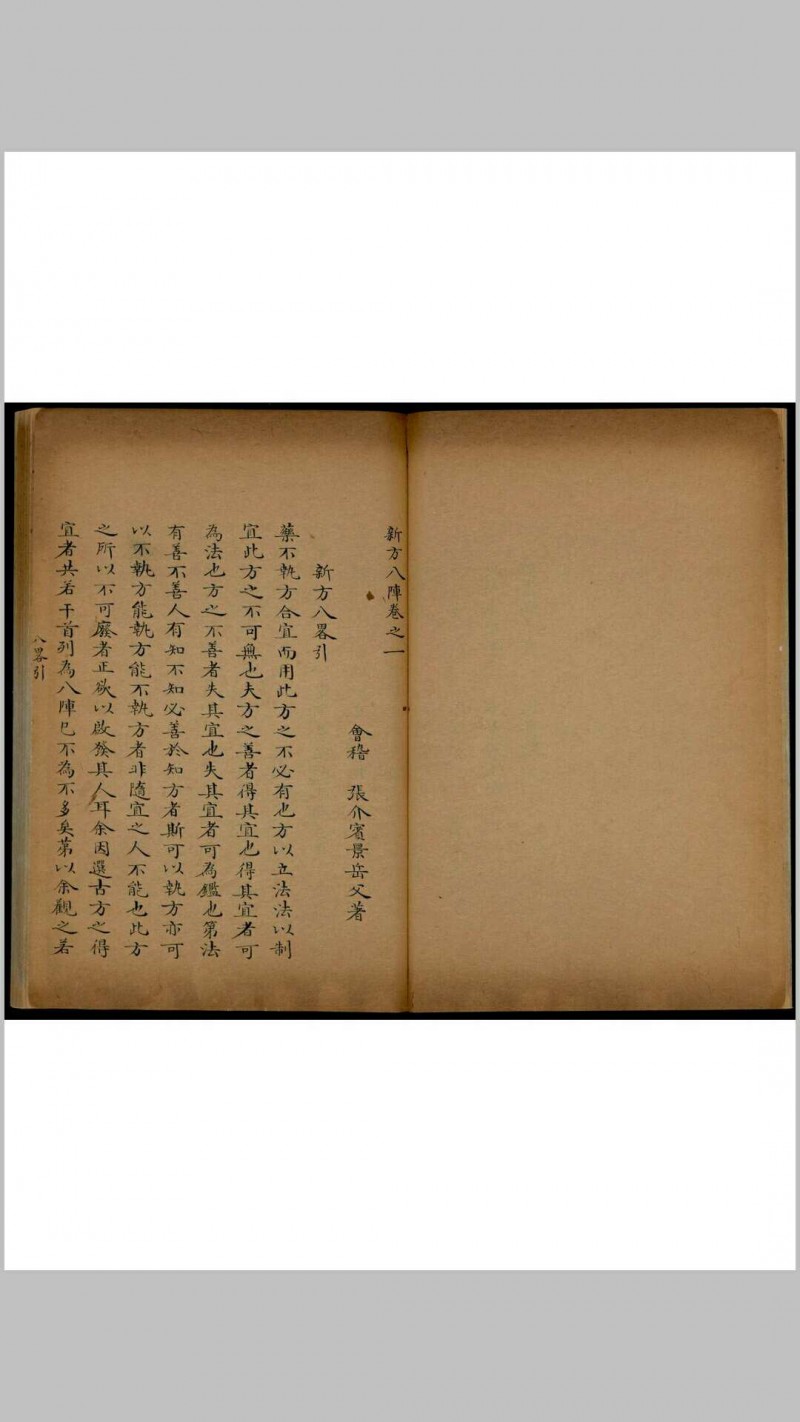 新方八陣卷之一
會稽 張介賓景岳父著
新方八畧引
藥不執方合宜而用此方之不必有也方以立法法以制
宜此方之不可無也夫方之善者得其宜也得其宜者可
為法也方之不善者失其宜也失其宜者可為鑑也第法
有善不善人有知不知必善於知方者斯可以執方亦可
以不執方能執方能不執方者非隨宜之人不能也此方
之所以不可廢者正欲以啟發其人耳余因選古方之得
宜者共若干首列為八陣已不為不多矣第以余觀之若
八畧引